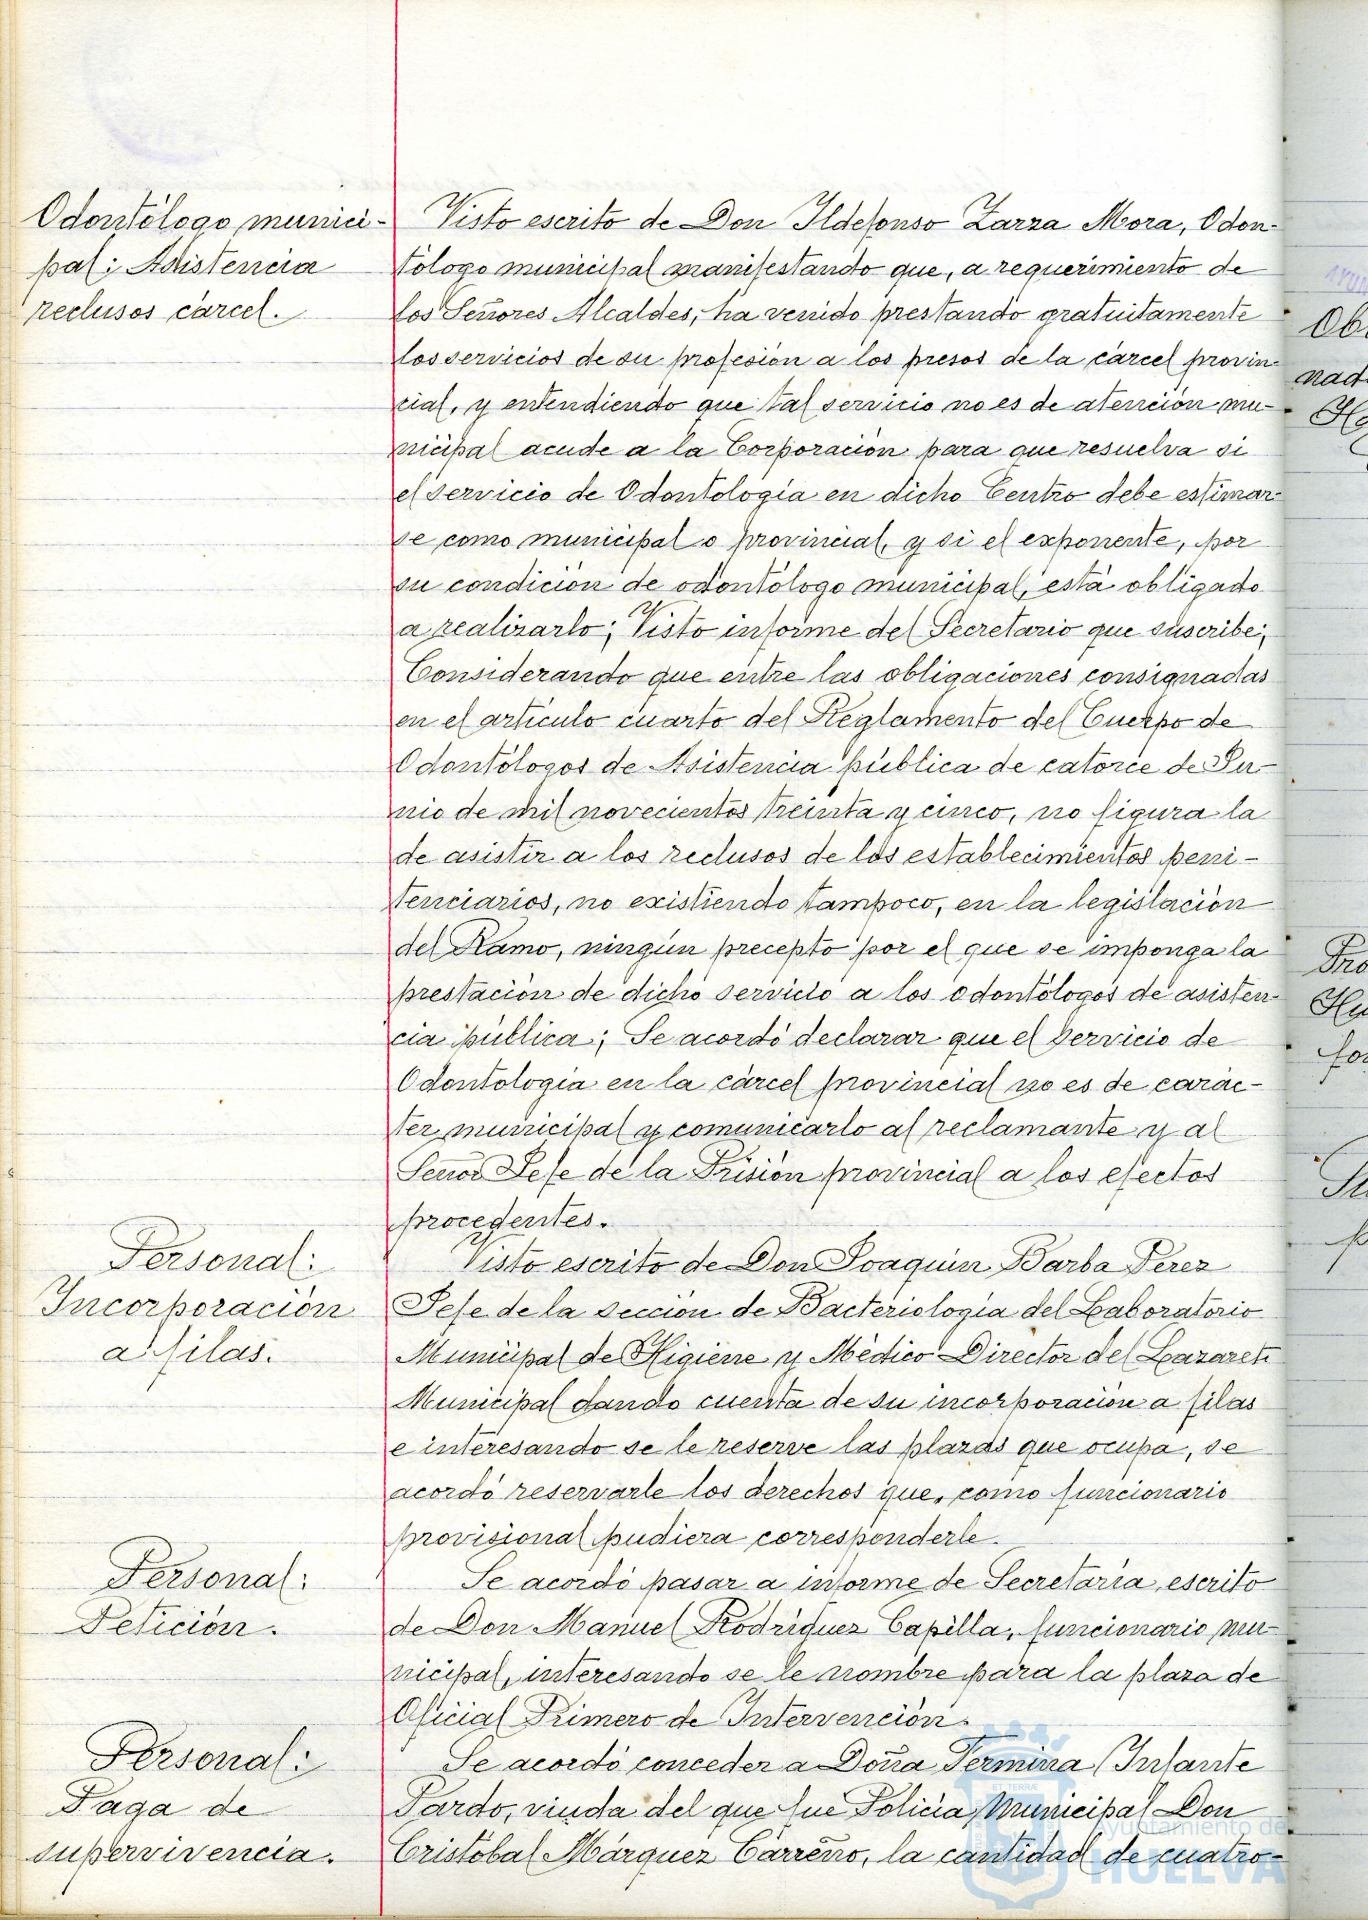 Odontólogo munici-
pal: Asistencia
reclusos cárcel.
Visto escrito de Don Ildefonso Zarza Mora, Odon-
tólogo municipal manifestando que, a requerimiento de
los Señores Alcaldes, ha venido prestando gratuitamente
los servicios de su profesión a los presos de la cárcel provin-
cial, y entendiendo que tal servicio no es de atención mu-
nicipal acude a la Corporación para que resuelva si
el servicio de Odontología en dicho Centro debe estimar-
se como municipal o provincial, y si el exponente, por
su condición de odontólogo municipal, está obligado
a realizarlo; Visto informe del Secretario que suscribe;
Considerando que entre las obligaciones consignadas
en el artículo cuarto del Reglamento del Cuerpo de
Odontólogos de Asistencia pública de catorce de Ju-
nio de mil novecientos treinta y cinco, no figura la
de asistir a los reclusos de los establecimientos peni-
tenciarios, no existiendo tampoco, en la legislación
del Ramo, ningún precepto por el que se imponga la
prestación de dicho servicio a los odontólogos de asisten-
cia pública; Se acordó declarar que el Servicio de
Odontología en la cárcel provincial no es de carác-
ter municipal y comunicarlo al reclamante y al
Señor Jefe de la Prisión provincial a los efectos
procedentes.
Personal:
Incorporación
a filas.
Visto escrito de Don Joaquín Barba Pérez
Jefe de la sección de Bacteriología del Laboratorio
Municipal de Higiene y Médico Director del Lazareto
Municipal dando cuenta de su incorporación a filas
e interesando se le reserve las plazas que ocupa, se
acordó reservarle los derechos que, como funcionario
provisional pudiera corresponderle.
Personal:
Petición.
Se acordó pasar a informe de Secretaría, escrito
de Don Manuel Rodríguez Capilla, funcionario mu-
nicipal, interesando se le nombre para la plaza de
Oficial Primero de Intervención.
Personal:
Paga de
supervivencia.
Se acordó conceder a Doña Fermina Infante
Pardo, viuda del que fue Policía Municipal Don
Cristóbal Márquez Carreño, la cantidad de cuatro-
Ayuntamiento de
HUELVA